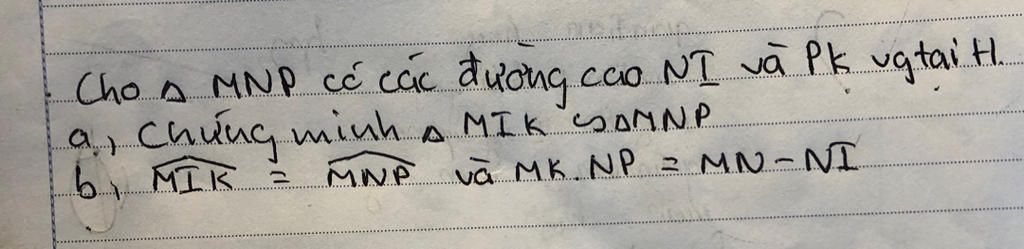 Cho △ MNP có các đường cao NI và PK vg tại H.
a, Chứng minh △ MIK ∽ △MNP
b, \widehat{MIK} = \widehat{MNP} và MK. NP = MN - NI